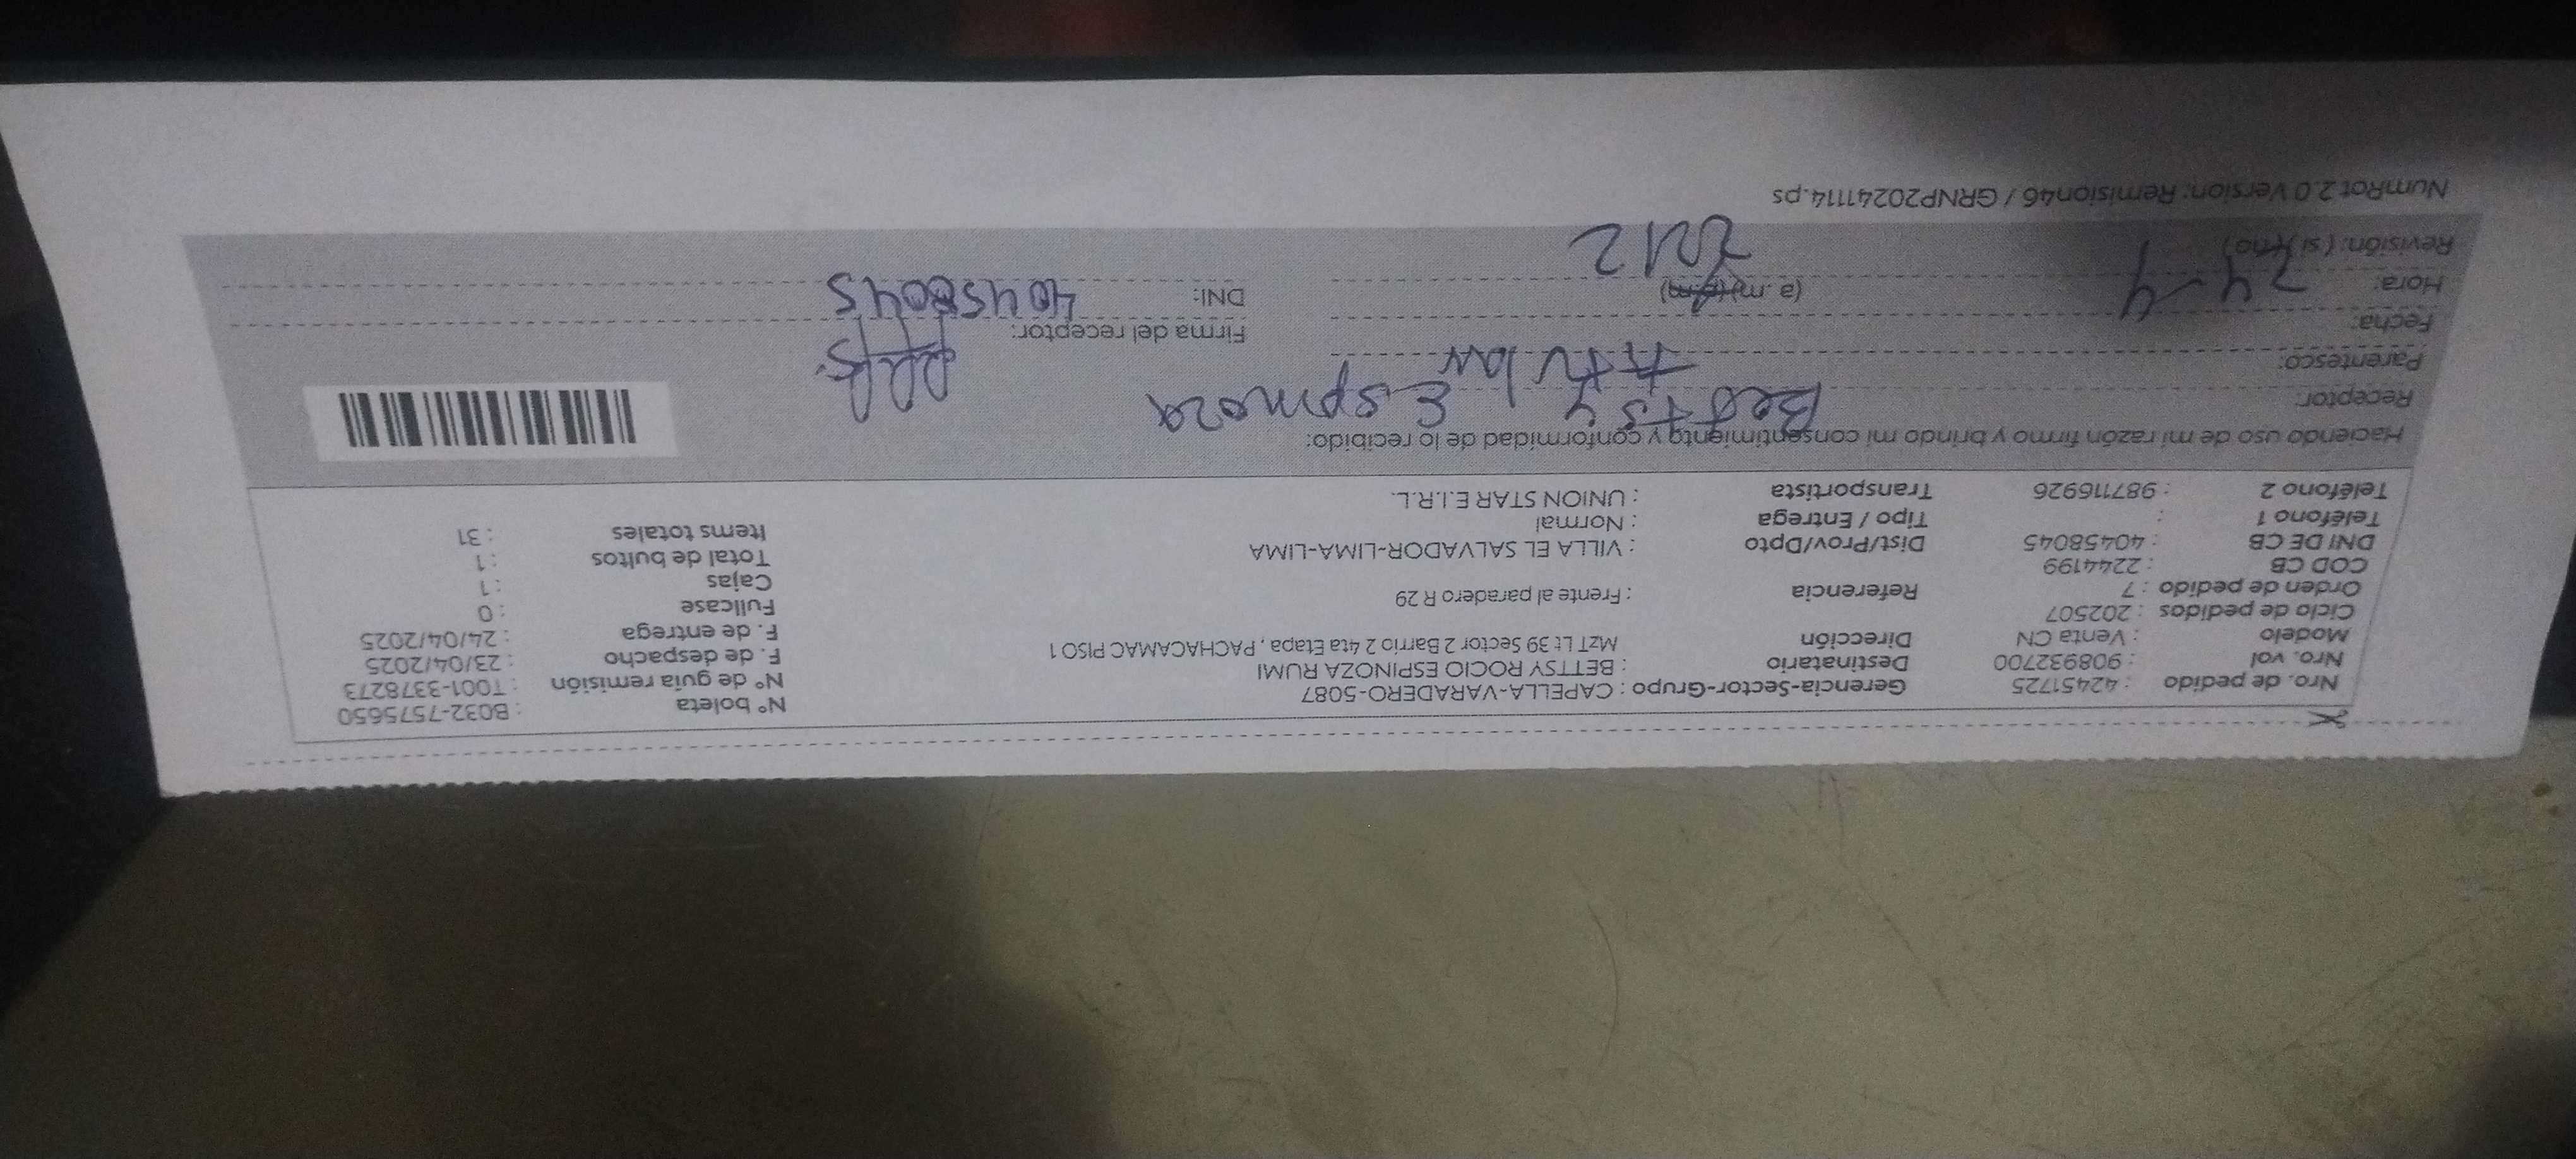 Nro. de pedido : 42451725 Gerencia-Sector-Grupo : CAPELLA-VARADERO-5087 N° boleta : B032-7575650
Nro. vol : 908932700 Destinatario : BETTSY ROCIO ESPINOZA RUMI N° de guía remisión : T001-3378273
Modelo : Venta CN Dirección MzT Lt 39 Sector 2 Barrio 2 4ta Etapa , PACHACAMAC PISO 1 F. de despacho : 23/04/2025
Ciclo de pedidos : 202507 F. de entrega : 24/04/2025
Orden de pedido : 7 Referencia : Frente al paradero R 29 Fullcase : 0
COD CB : 2244199 Cajas : 1
DNI DE CB : 40458045 Dist/Prov/Dpto : VILLA EL SALVADOR-LIMA-LIMA Total de bultos : 1
Teléfono 1 : Tipo / Entrega : Normal Items totales : 31
Teléfono 2 : 987116926 Transportista : UNION STAR E.I.R.L.
Haciendo uso de mi razón firmo y brindo mi consentimiento y conformidad de lo recibido:
Receptor: Bettsy Espinoza
Parentesco:
Fecha: 24-4 Firma del receptor:
Hora: (a. m) (p.m) DNI: 40458045
Revisión: ( si ) (no)
NumRot 2.0 Version: Remision46 / GRNP20241114.ps